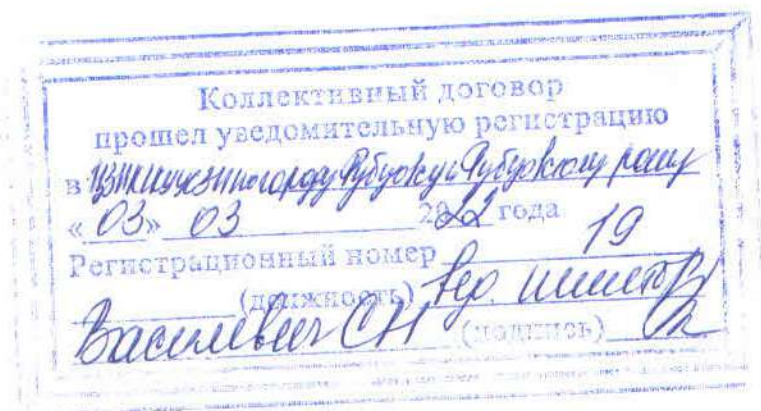 Коллективный договор
прошел уведомительную регистрацию
в городу Рубцовску и Рубцовскому р-ону
«03» 03 2022 года
Регистрационный номер 19
(должность) вед. инспектор
Василевич СН (подпись)